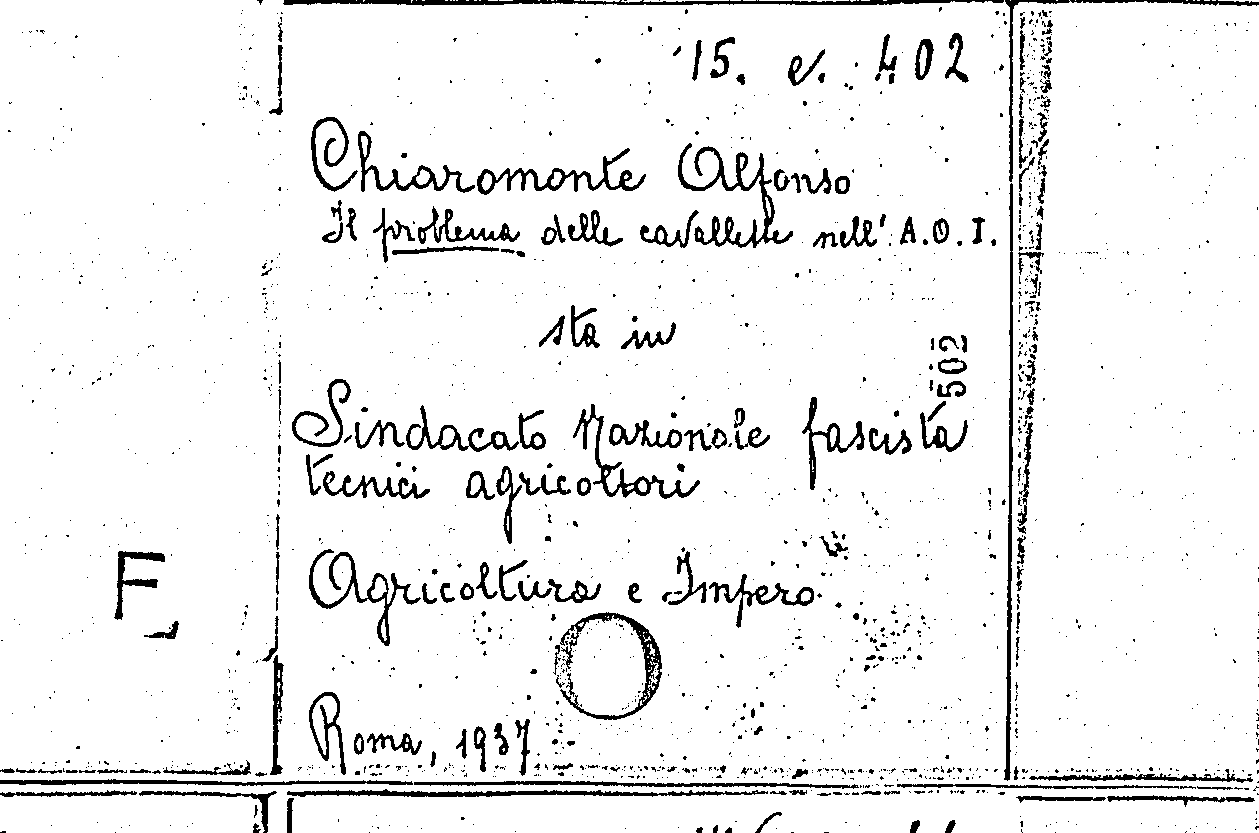 15. e. 402
Chiaromonte Alfonso
Il problema delle cavallette nell' A.O.I.
sta in
502
Sindacato Nazionale fascista
tecnici agricoltori
Agricoltura e Impero
F
Roma, 1937